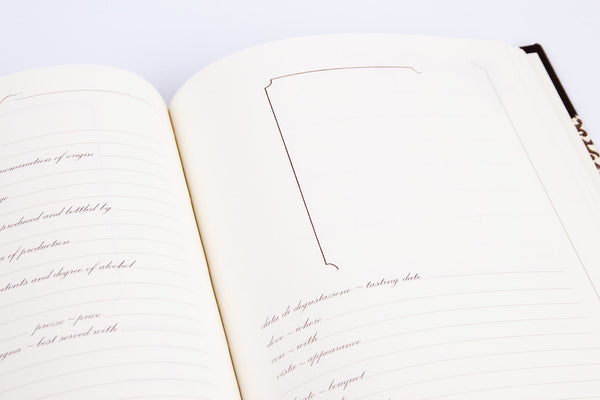 nomination of origin
produced and bottled by
of production
and degree of alcohol
prezzo ~ price
~ best served with
data di degustazione ~ tasting date
dove ~ where
con ~ with
vista ~ appearance
~ bouquet